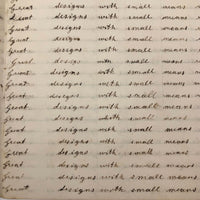 Great designs with small means
Great designs with small means
Great designs with small means
Great designs with small means
Great designs with small means
Great designs with small means
Great designs with small means
Great designs with small means
Great designs with small means
Great designs with small means
Great designs with small means
Great designs with small means
Great designs with small means
Great designs with small means
Great designs with small means
Great designs with small means
Great designs with small means